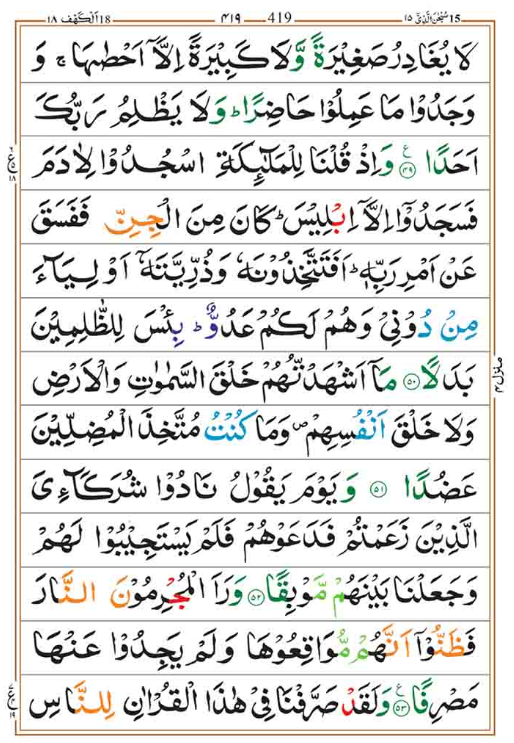 ١٨ اَلْكَهْف 18 ٤١٩ 419 15 سُبْحٰنَ الَّذِيْ ١٥
لَا يُغَادِرُ صَغِيْرَةً وَّلَا كَبِيْرَةً اِلَّاۤ اَحْصٰىهَا ۚ وَ
وَجَدُوْا مَا عَمِلُوْا حَاضِرًا ؕ وَلَا يَظْلِمُ رَبُّكَ
اَحَدًا ۟ ٤٩ وَاِذْ قُلْنَا لِلْمَلٰٓئِكَةِ اسْجُدُوْا لِاٰدَمَ
فَسَجَدُوْۤا اِلَّاۤ اِبْلِيْسَ ؕ كَانَ مِنَ الْجِنِّ فَفَسَقَ
عَنْ اَمْرِ رَبِّهٖ ؕ اَفَتَتَّخِذُوْنَهٗ وَذُرِّيَّتَهٗۤ اَوْلِيَآءَ
مِنْ دُوْنِيْ وَهُمْ لَكُمْ عَدُوٌّ ؕ بِئْسَ لِلظّٰلِمِيْنَ
بَدَلًا ٥٠ مَاۤ اَشْهَدْتُّهُمْ خَلْقَ السَّمٰوٰتِ وَالْاَرْضِ
وَلَا خَلْقَ اَنْفُسِهِمْ ۪ وَمَا كُنْتُ مُتَّخِذَ الْمُضِلِّيْنَ
عَضُدًا ٥١ وَيَوْمَ يَقُوْلُ نَادُوْا شُرَكَآءِيَ
الَّذِيْنَ زَعَمْتُمْ فَدَعَوْهُمْ فَلَمْ يَسْتَجِيْبُوْا لَهُمْ
وَجَعَلْنَا بَيْنَهُمْ مَّوْبِقًا ٥٢ وَرَاَ الْمُجْرِمُوْنَ النَّارَ
فَظَنُّوْۤا اَنَّهُمْ مُّوَاقِعُوْهَا وَلَمْ يَجِدُوْا عَنْهَا
مَصْرِفًا ٥٣ وَلَقَدْ صَرَّفْنَا فِيْ هٰذَا الْقُرْاٰنِ لِلنَّاسِ
منزل ٤